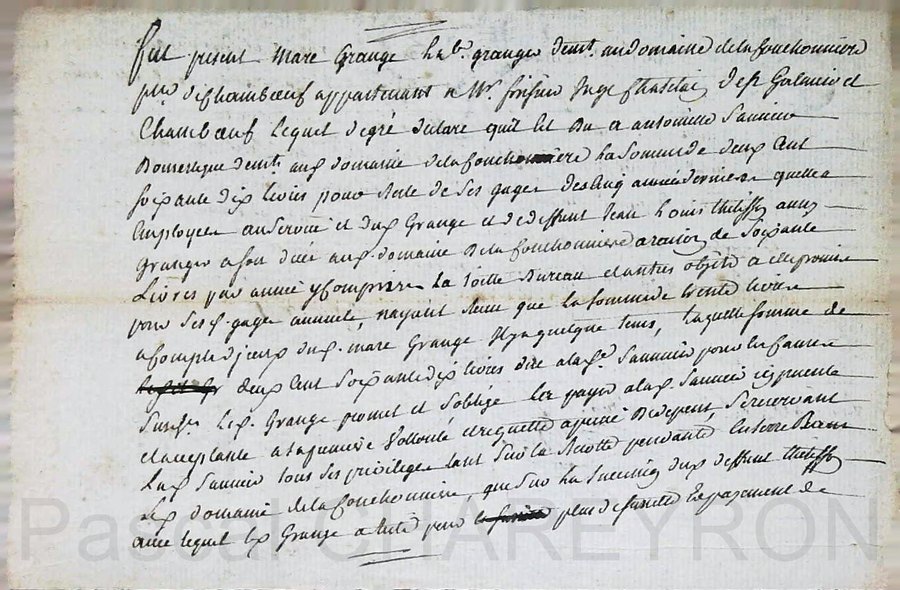 fut present Marc Grange hab. granger demt. au domaine de la fouchonniere
psse. de Chambœuf appartenant a Mr. juge Chatelain de St Galmier et
Chambœuf lequel de gré declare qu'il est du a antoinette Saunier
Domestique demt. aud. domaine de la fouchonniere la Somme de deux Cent
soixante dix livres pour Reste de ses gages des cinq années dernieres quelle a
Employées au Service et dud. Grange et de deffunt Jean Louis thelisson aussy
Granger a son decés aud. domaine De la fouchonniere a raison de Soixante
Livres par année y Comprises la toille Bureau et autres objets a elle promis
pour Sesd. gages annuels, n'ayant Reçu que la somme de trente livres
a Compte d'iceux dud. marc Grange il y a quelque tems, laquelle somme de
deux Cent Soixante dix livres dite a lad. Saunier pour les causes
Susd. Led. Grange promet et s'oblige de payer a lad. Saunier icy presente
et acceptante a sa premiere Vollonté et requette a peine De depens, Se reservant
Lad. Saunier tous ses privileges tant Sur la Recolte pendante En terre Dans
led. domaine de la fouchonniere, que Sur la succession dud. deffunt thelisson
avec lequel led. Grange a pour plus de sureté du payement de
Pascal CHAREYRON